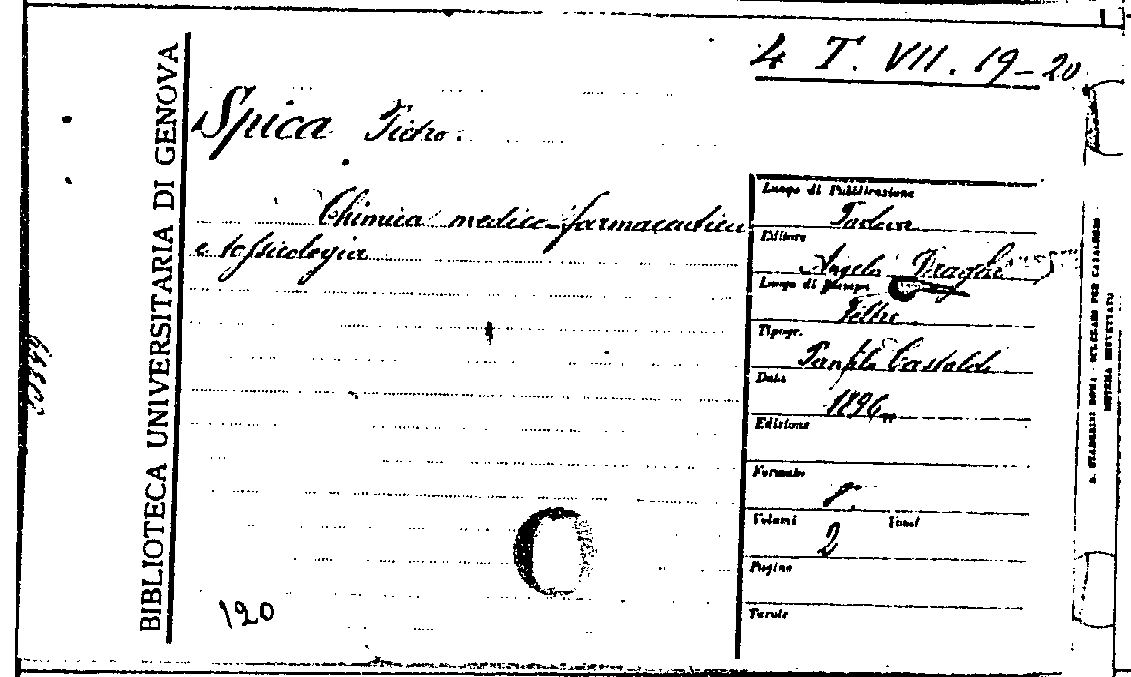 4 T. VII. 19-20
BIBLIOTECA UNIVERSITARIA DI GENOVA
Spica Pietro.
Chimica medico-farmaceutica
e tossicologia
Luogo di Pubblicazione
Padova
Editore
Angelo Draghi
Luogo di Stampa
Feltre
Tipogr.
Panfilo Castaldi
Data
1896
Edizione
Formato
8.
Volumi
2
Pagine
Tavole
120